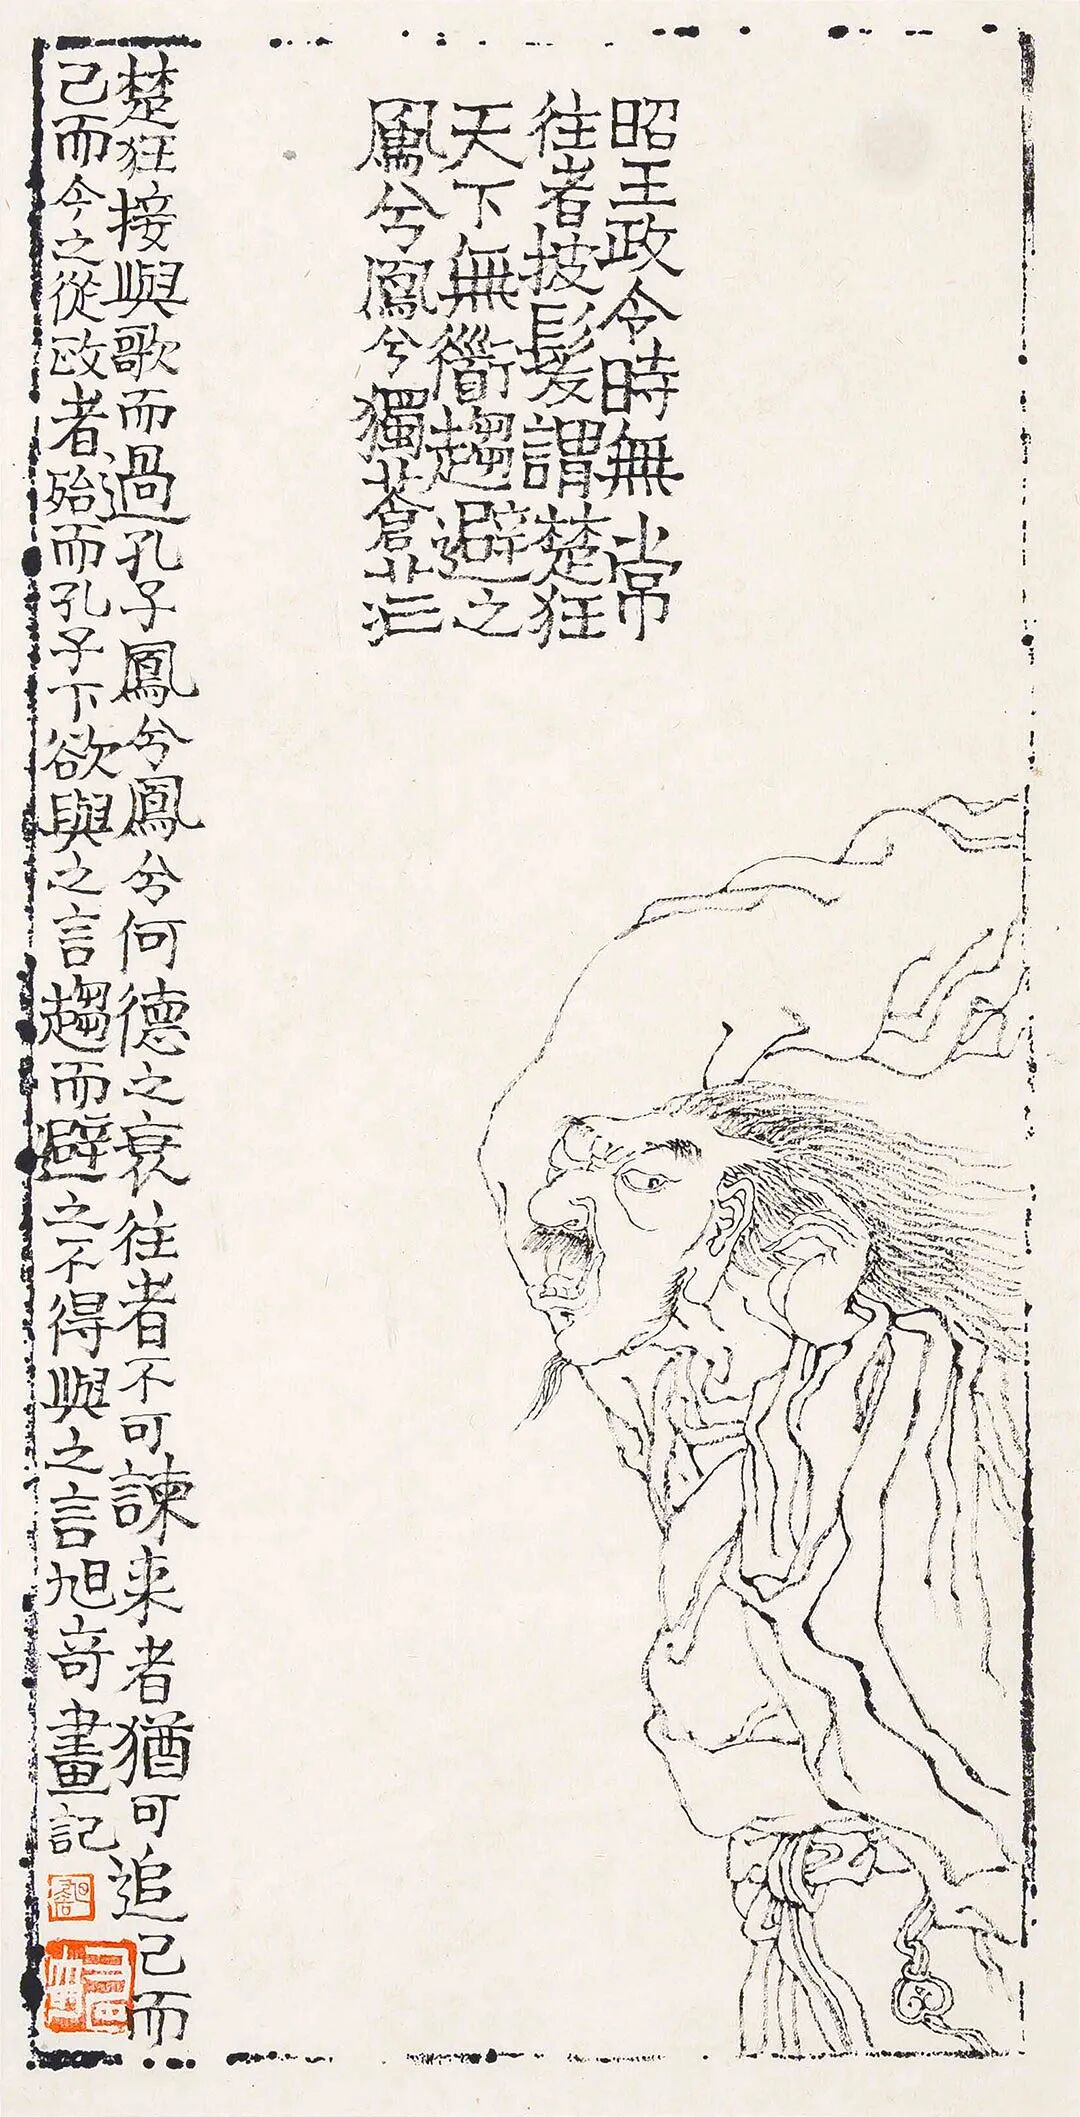 昭王政令時無常
往者披髮謂楚狂
天下無衜趨避之
鳳兮鳳兮獨蒼茫
楚狂接輿歌而過孔子鳳兮鳳兮何德之衰往者不可諫来者猶可追已而
已而今之從政者殆而孔子下欲與之言趨而避之不得與之言旭奇畫記